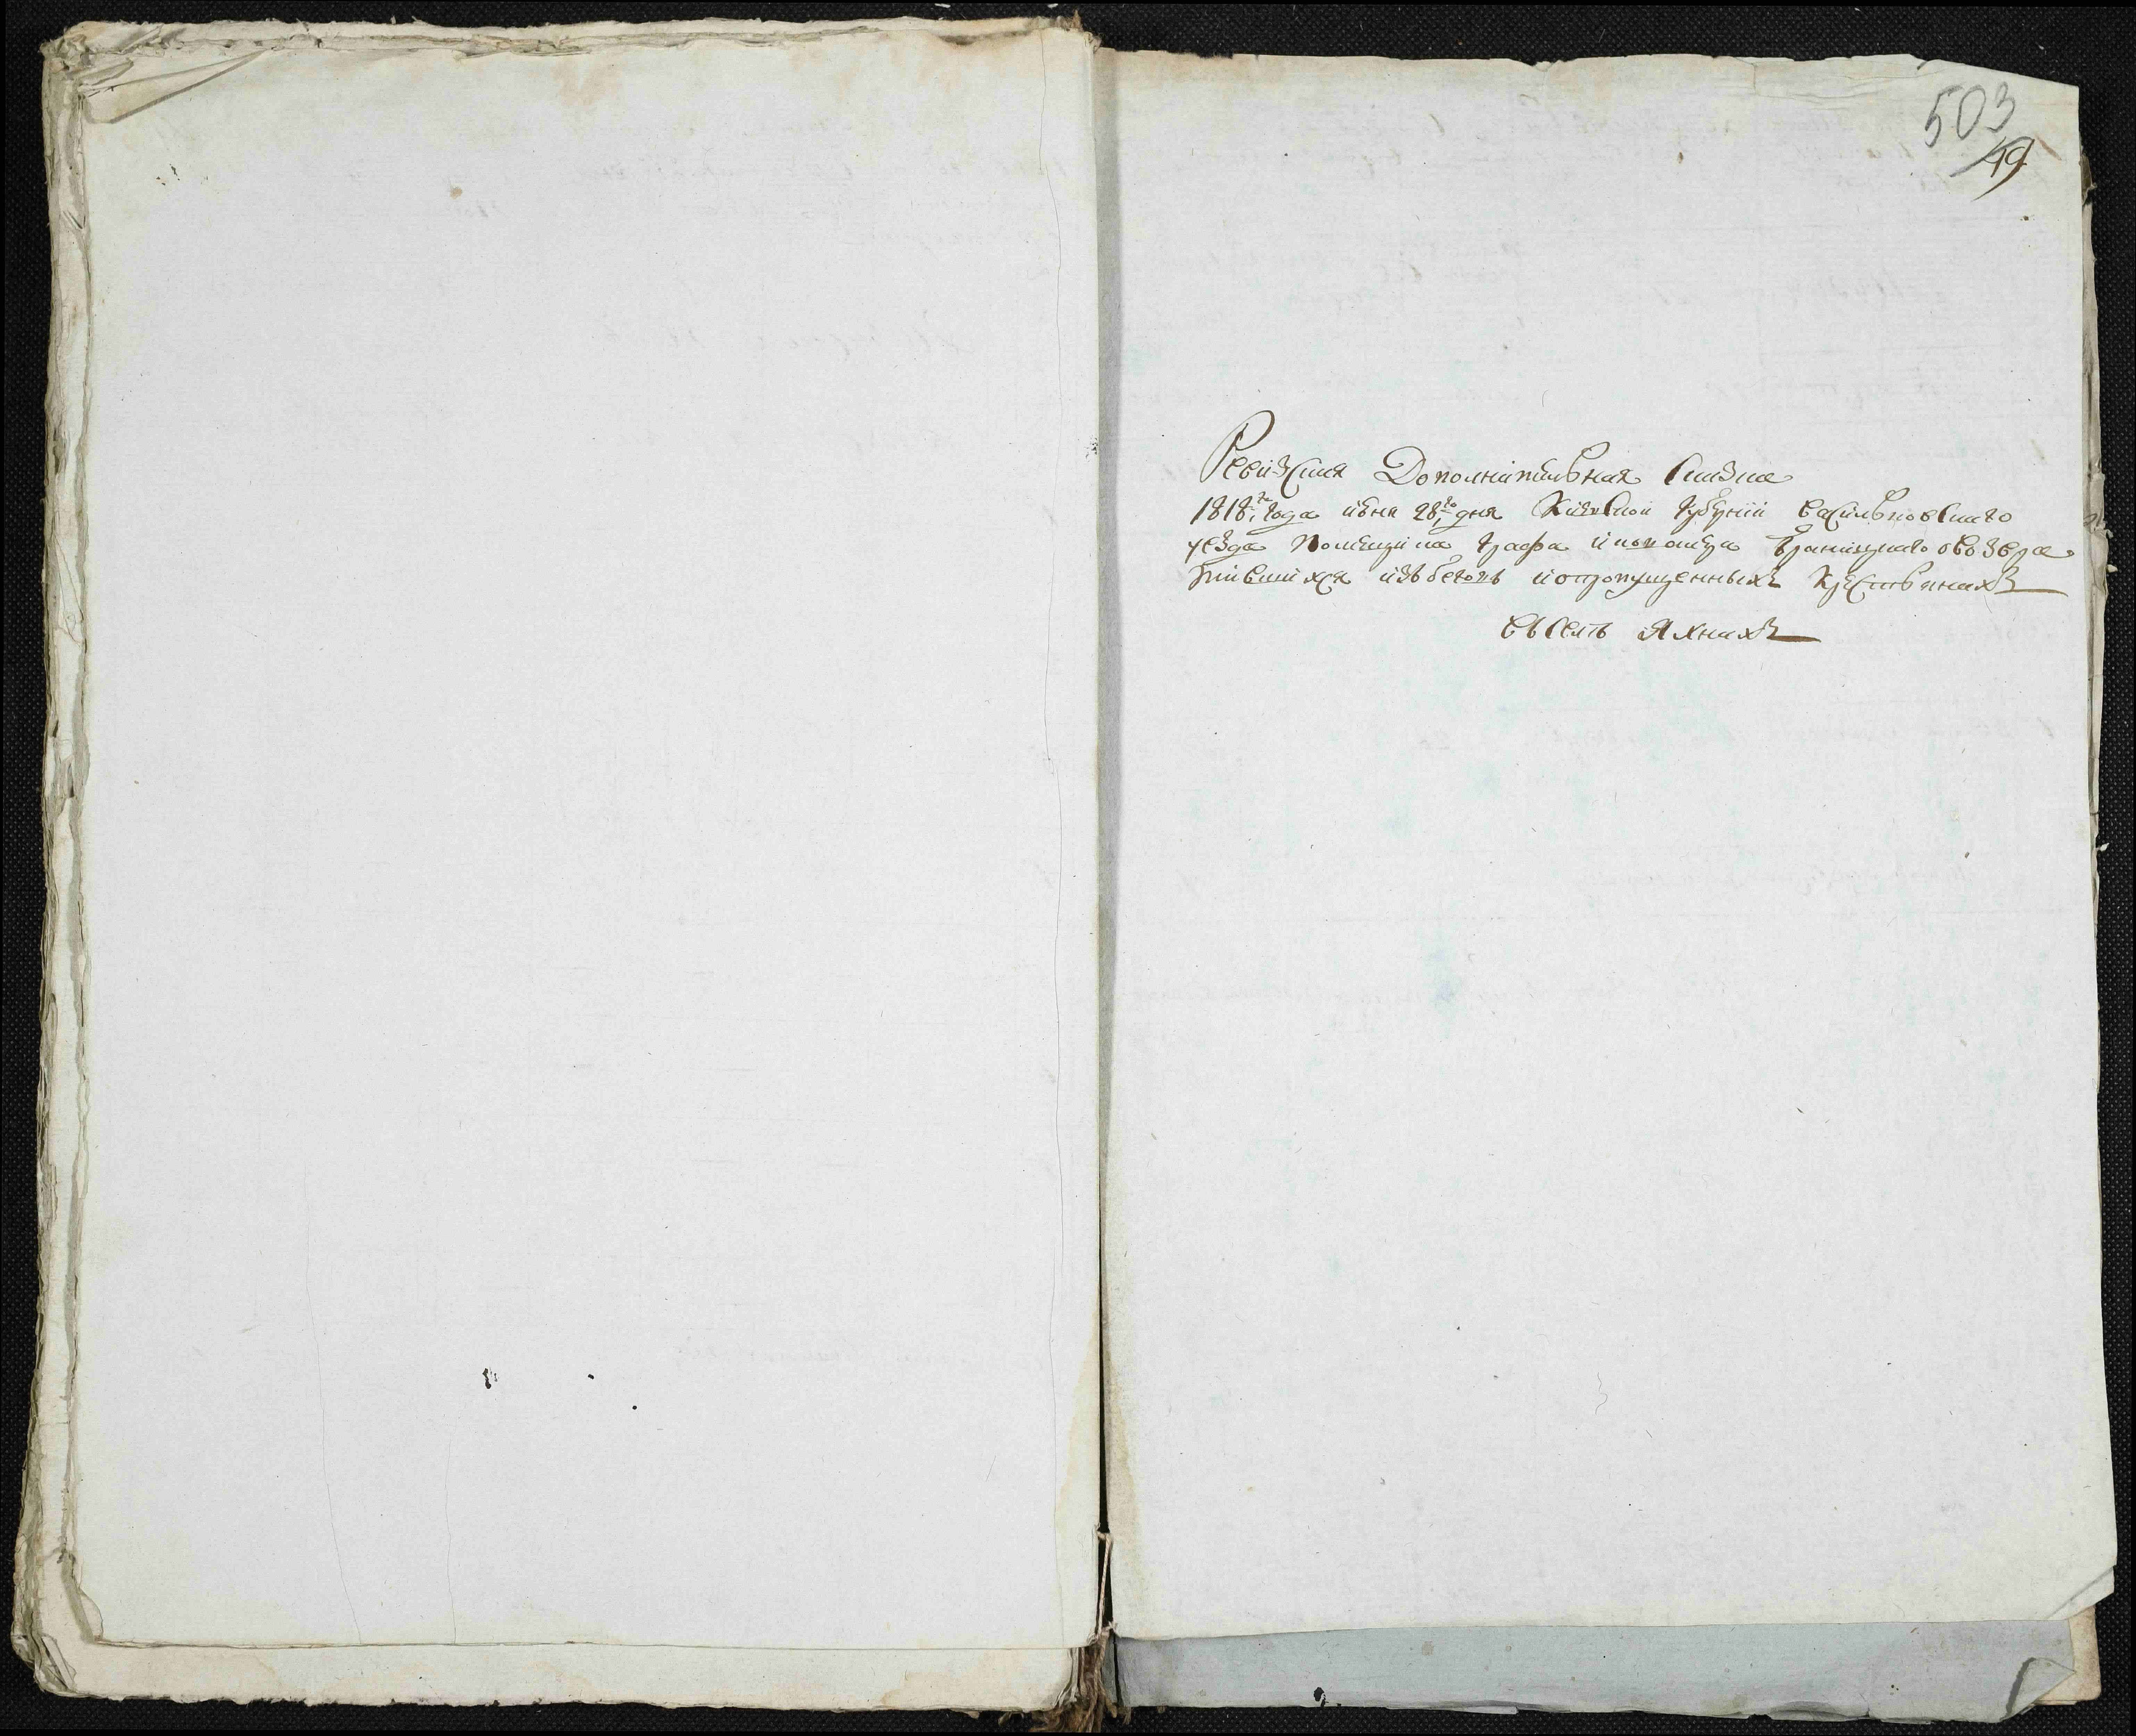 503
19
Ревизская Дополнительная Сказка
1818го года июня 28го дня Киевской Губернии Васильковского
уезда Помещика Графа Браницкаго овозвра
тившихся избегов ипропущенныхъ Крестьянахъ
Вселѣ Яхнахъ